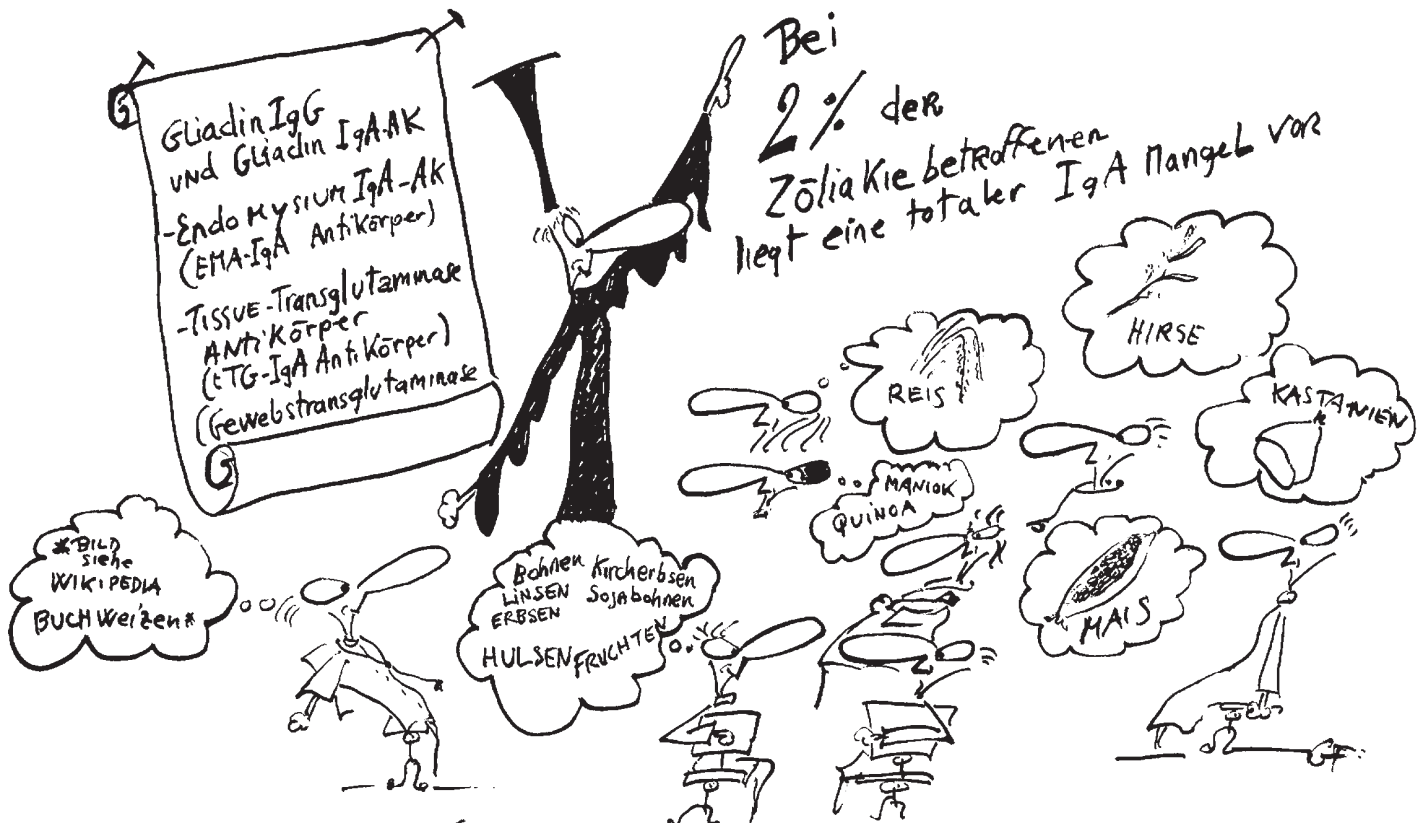 Gliadin IgG
und Gliadin IgA-AK
-Endomysium IgA-AK
(EMA-IgA Antikörper)
-Tissue-Transglutaminase
Antikörper
(tTG-IgA Antikörper)
(Gewebstransglutaminase
Bei
2% der
Zöliakie betroffenen
liegt eine totaler IgA Mangel vor
HIRSE
REIS
KASTANIEN
MANIOK
QUINOA
MAIS
*BILD
siehe
WIKIPEDIA
BUCHWeizen*
Bohnen Kircherbsen
LINSEN Sojabohnen
ERBSEN
HULSENFRUCHTEN